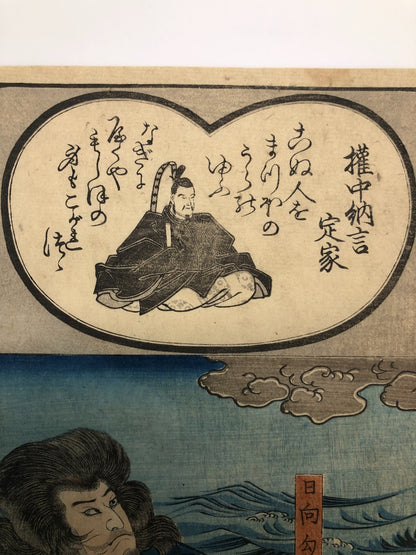 權中納言
定家
こぬ人を
まつほの
うらの
ゆふ
なぎに
やくや
もしほの
身もこがれ
つゝ
日向勾